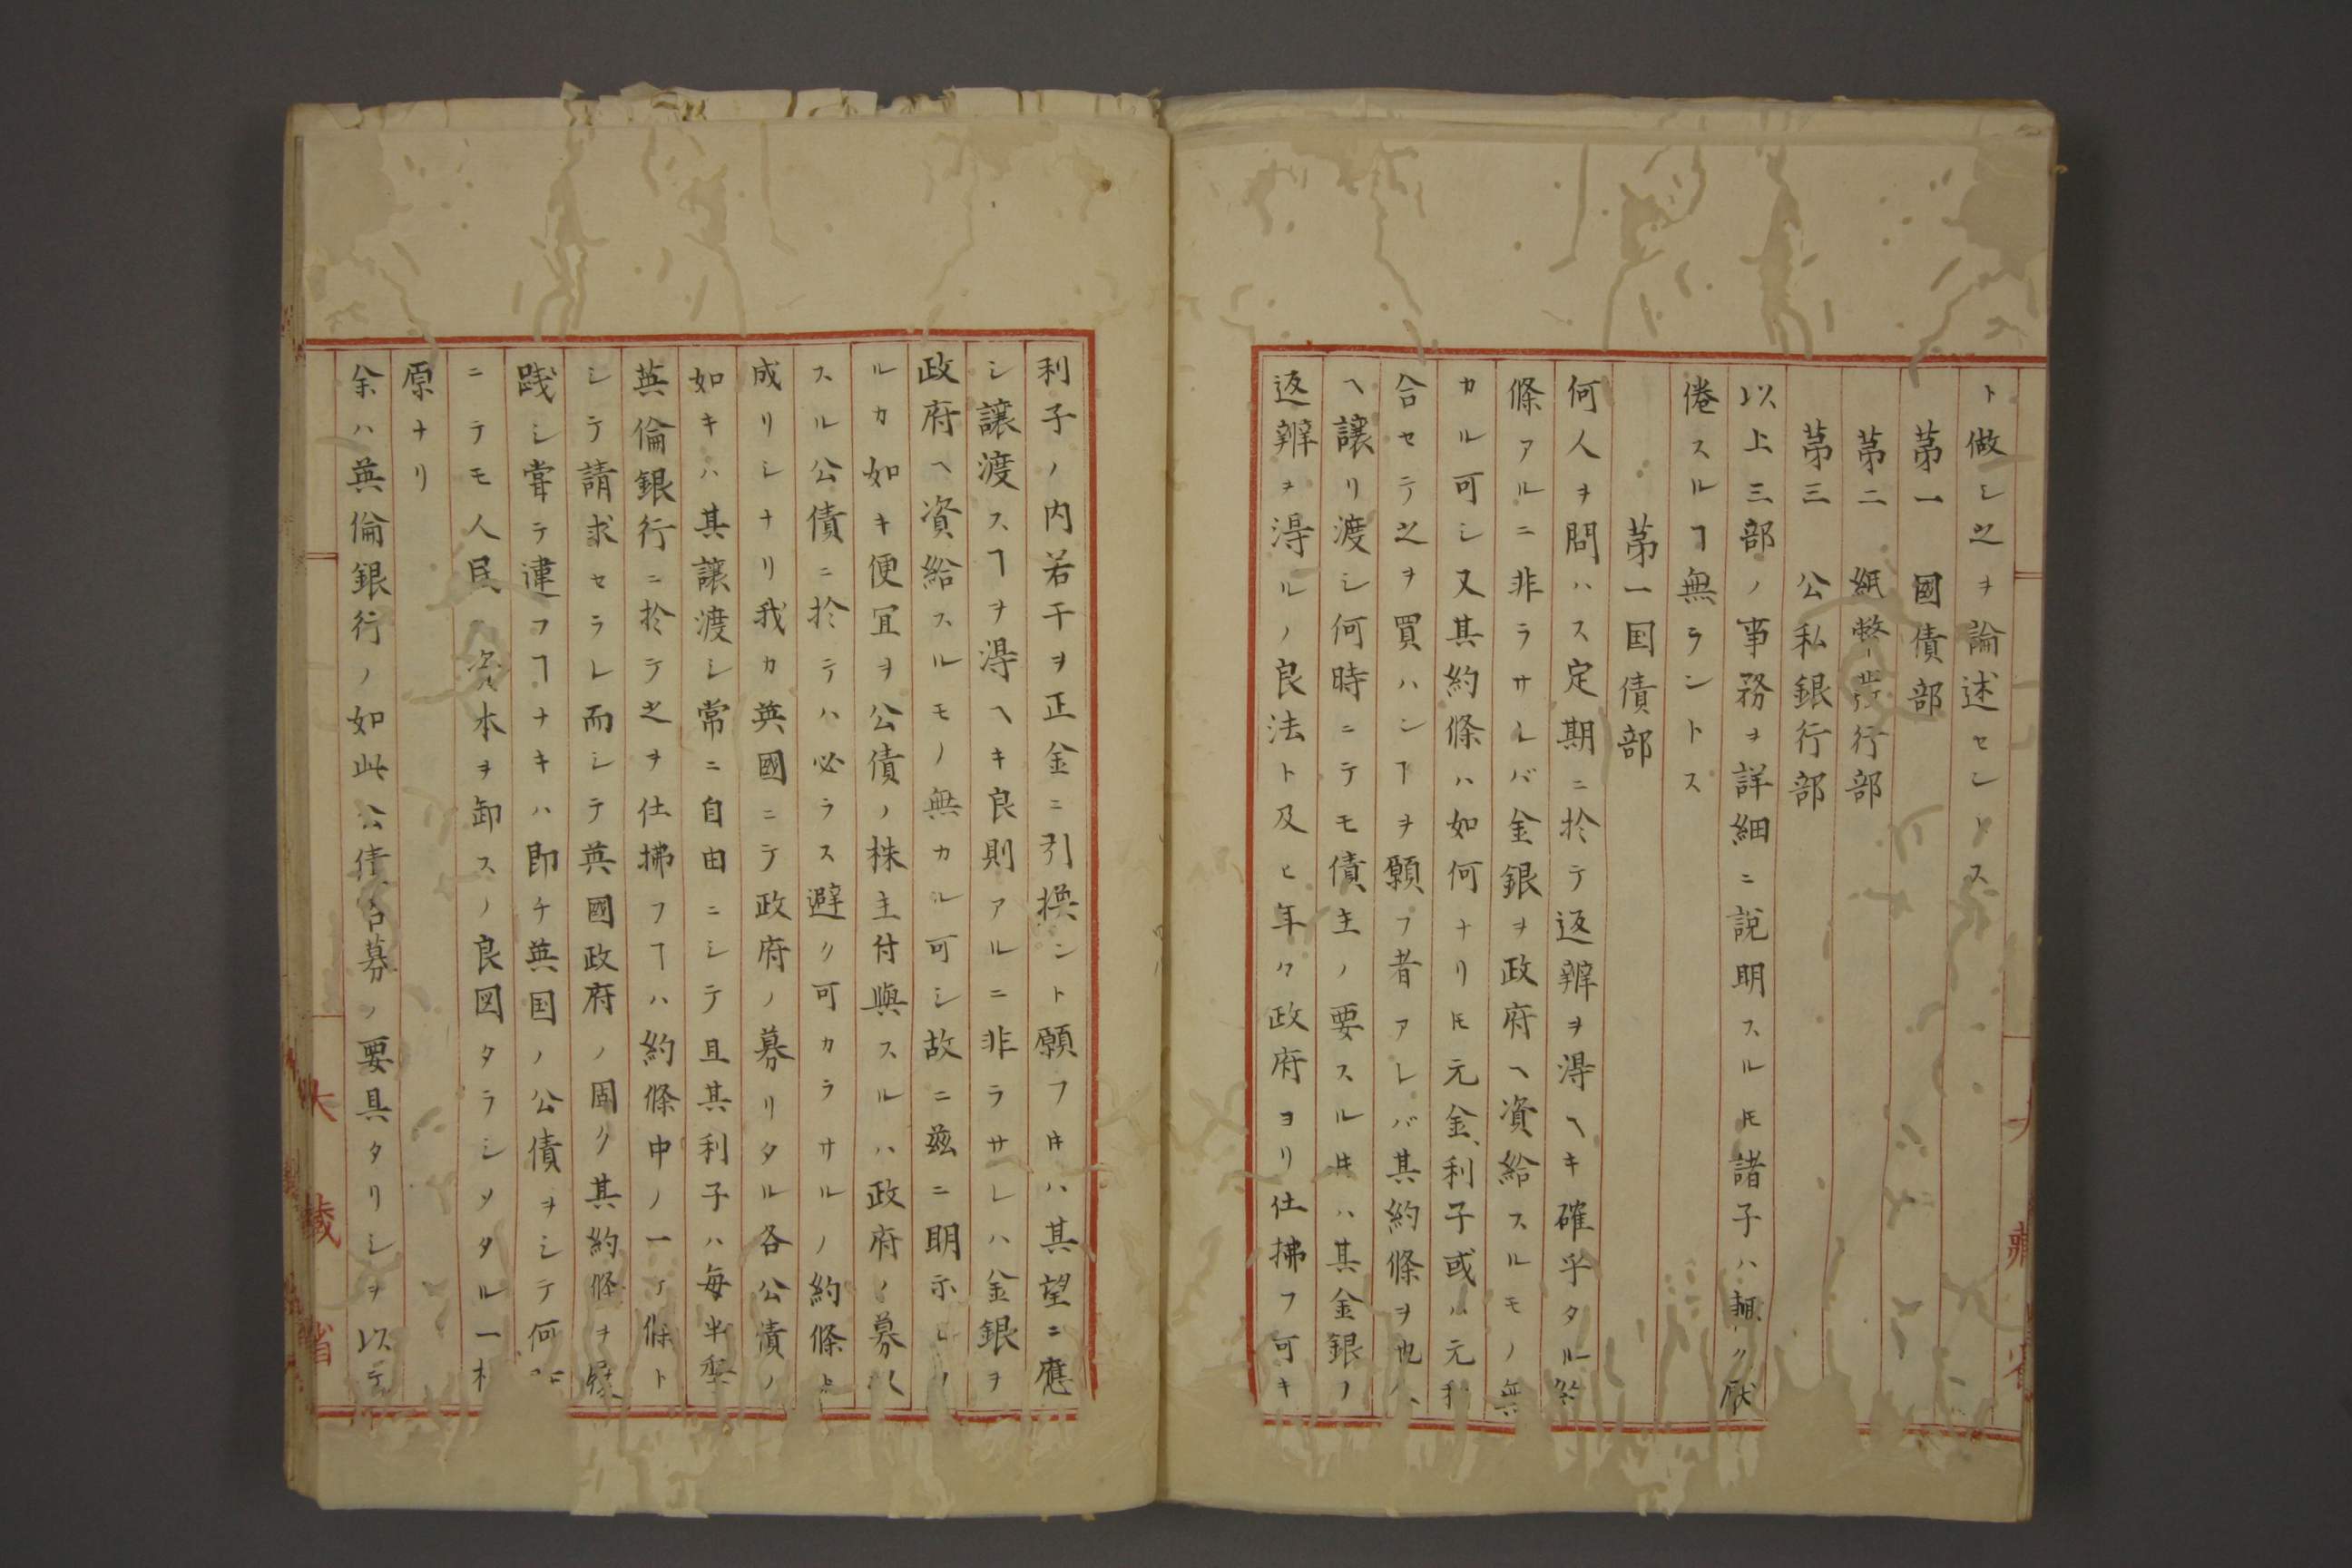 ト做シ之ヲ論述セントス
第一 國債部
第二 紙幣発行部
第三 公私銀行部
以上三部ノ事務ヲ詳細ニ說明スルモ諸子ハ頼ク厭
倦スルヿ無ラントス
第一国債部
何人ヲ問ハス定期ニ於テ返辨ヲ得ヘキ確乎タル
條アルニ非ラサレバ金銀ヲ政府ヘ資給スルモノ無
カル可シ又其約條ハ如何ナリ𪜈元金利子或ハ元利
合セテ之ヲ買ハンヿヲ願フ者アレバ其約條ヲ他人
ヘ讓リ渡シ何時ニテモ債主ノ要スル𪜈ハ其金銀ノ
返辨ヲ得ルノ良法ト及ヒ年々政府ヨリ仕拂フ可キ
利子ノ内若干ヲ正金ニ引換ント願フ𪜈ハ其望ニ應
シ讓渡スヿヲ得ヘキ良則アルニ非ラサレハ金銀ヲ
政府ヘ資給スルモノ無カル可シ故ニ茲ニ明示
ルカ如キ便宜ヲ公債ノ株主付與スルハ政府ノ募
スル公債ニ於テハ必ラス避ク可カラサルノ約條ト
成リシナリ我カ英國ニテ政府ノ募リタル各公債ノ
如キハ其讓渡シ常ニ自由ニシテ且其利子ハ毎半季
英倫銀行ニ於テ之ヲ仕拂フヿハ約條中ノ一ヶ條ト
シテ請求セラレ而シテ英國政府ノ固ク其約條ヲ履
践シ甞テ違フヿナキハ即チ英国ノ公債ヲシテ何
ニテモ人民ノ資本ヲ卸スノ良図タラシメタル一
原ナリ
余ハ英倫銀行ノ如此公債召募ノ要具タリシヲ以テ
大藏省
大藏省